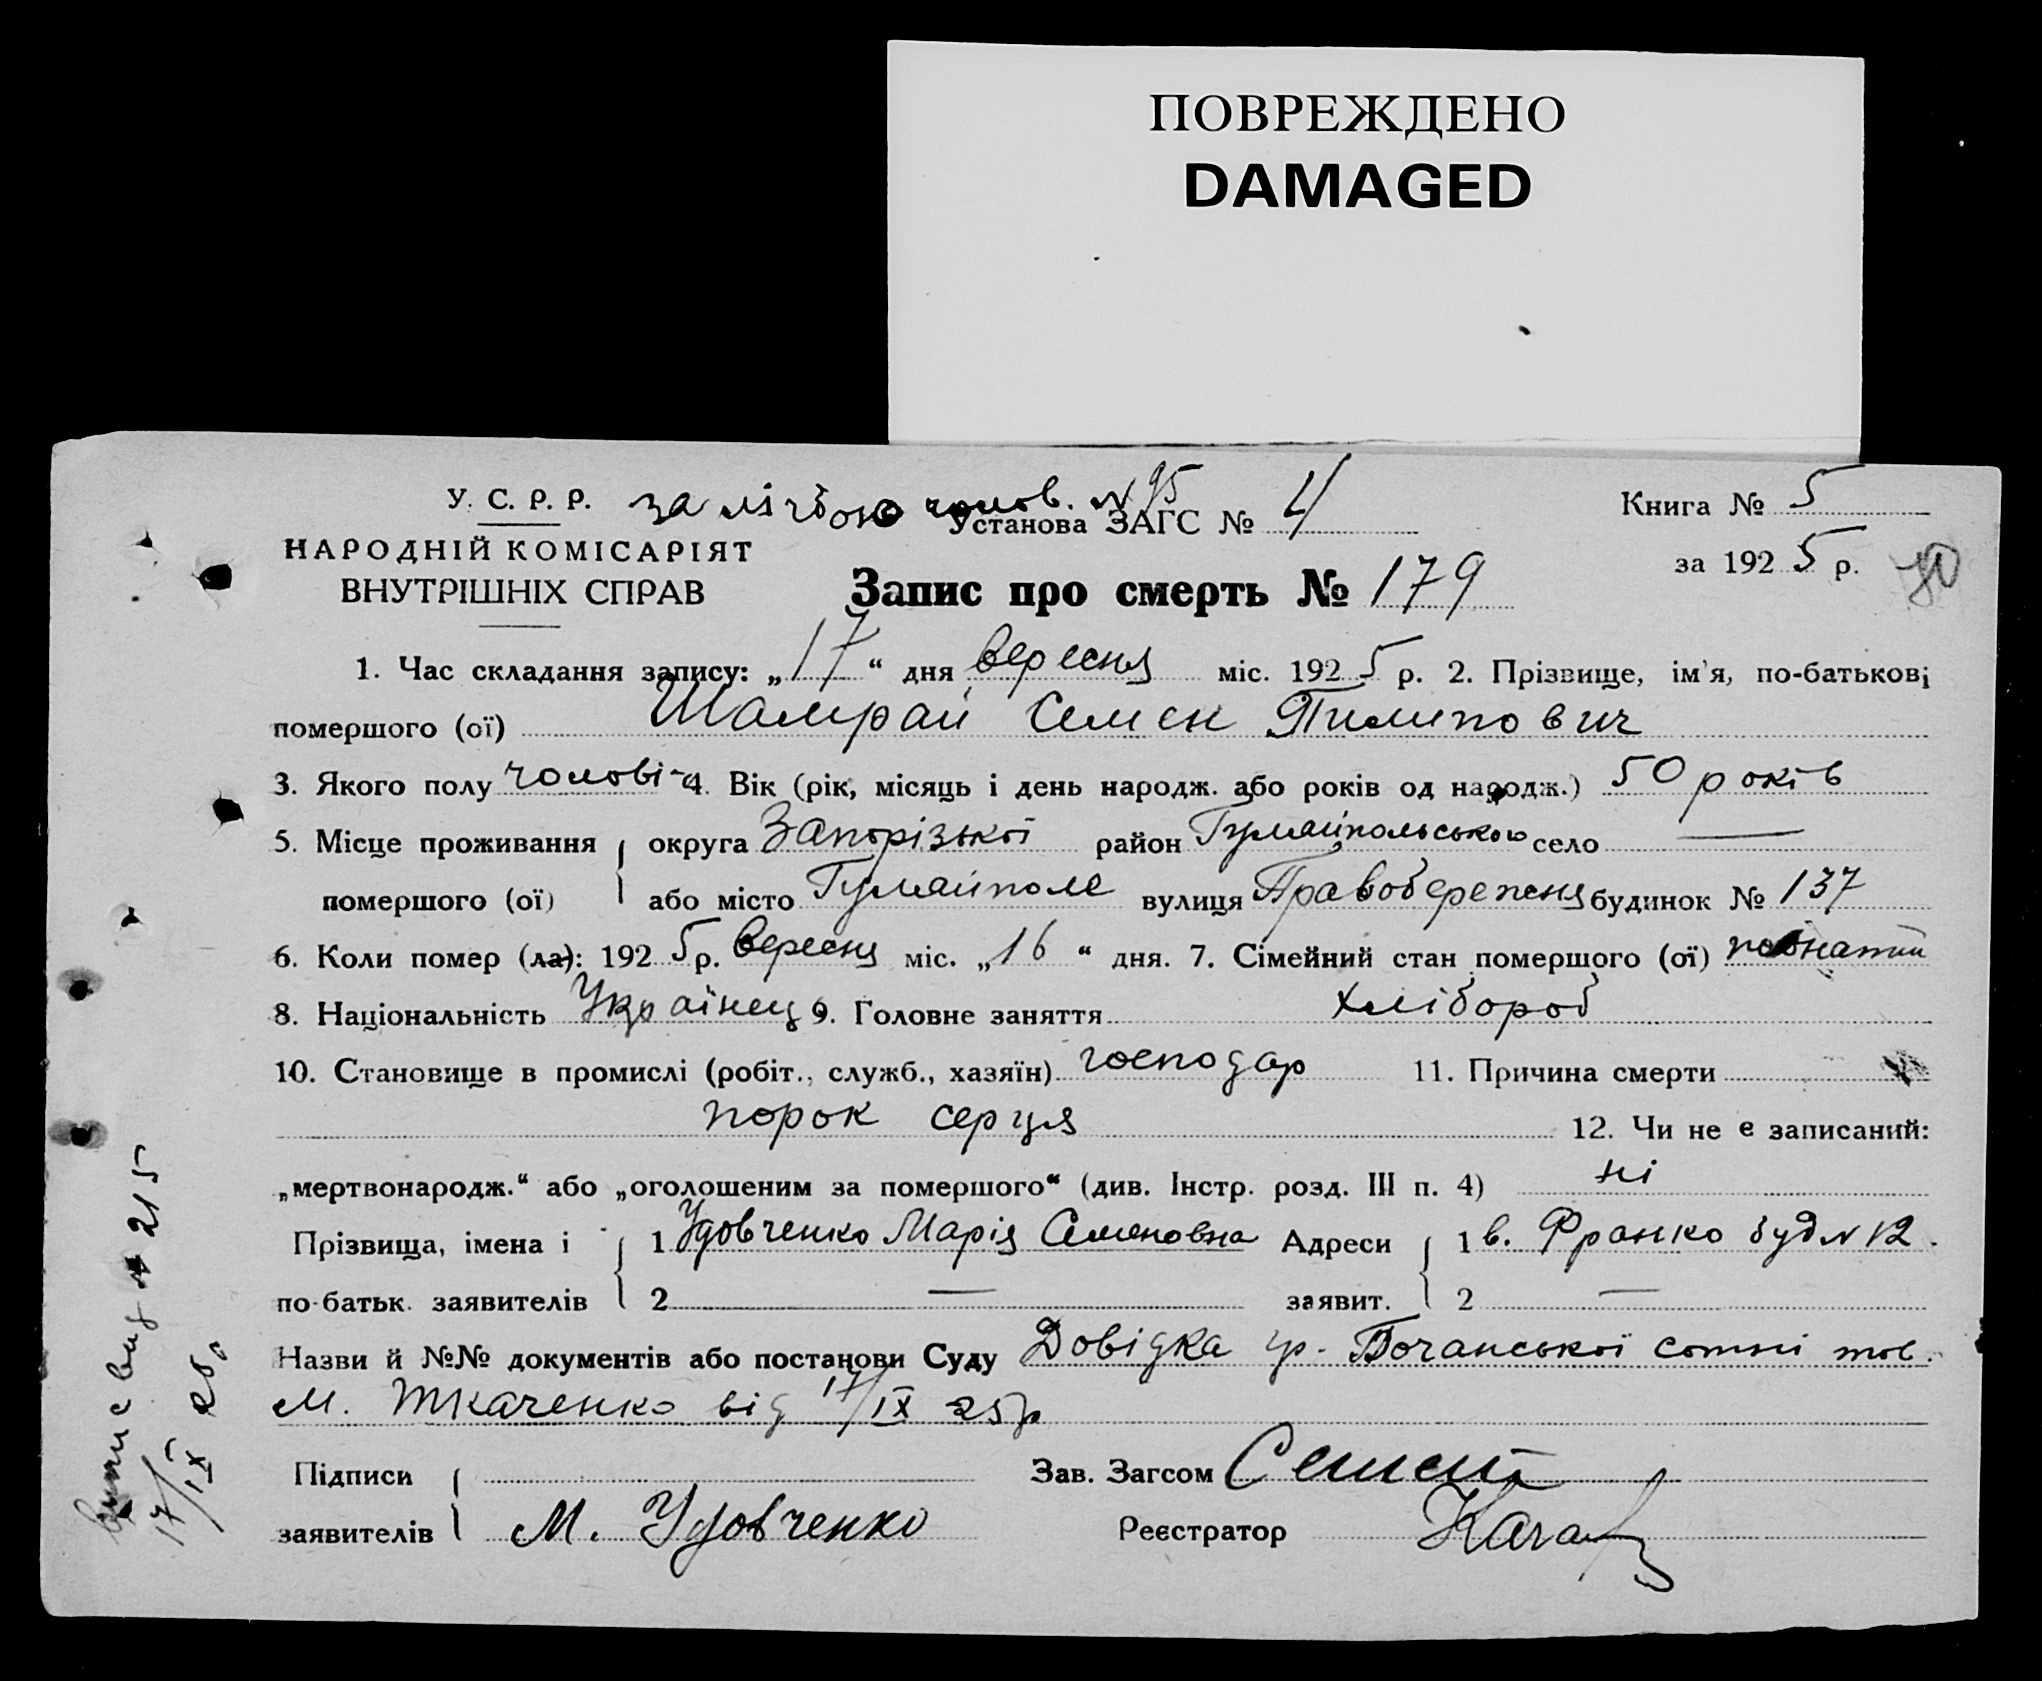 ПОВРЕЖДЕНО
DAMAGED
У. С. Р. Р. за лічбою чолов. № 95 Установа ЗАГС № 4 Книга № 5
НАРОДНІЙ КОМІСАРІЯТ за 1925 р.
ВНУТРІШНІХ СПРАВ Запис про смерть № 179
1. Час складання запису: „17“ дня вересня міс. 1925 р. 2. Прізвище, ім'я, по-батькові
помершого (ої) Шамрай Семен Пилипович
3. Якого полу чолові- 4. Вік (рік, місяць і день народж. або років од народж.) 50 років
5. Місце проживання округа Запорізької район Гуляйпольського село —
помершого (ої) або місто Гуляйполе вулиця Правобережня будинок № 137
6. Коли помер (ла): 1925 р. Вересня міс. „16“ дня. 7. Сімейний стан помершого (ої)
8. Національність Українець 9. Головне заняття хлібороб
10. Становище в промислі (робіт., служб., хазяїн) господар 11. Причина смерти
порок серця 12. Чи не є записаний:
„мертвонародж.“ або „оголошеним за помершого“ (див. Інстр. розд. III п. 4) ні
Прізвища, імена і 1 Удовченко Марія Семеновна Адреси 1 в. Франко буд № 12.
по-батьк. заявителів 2 — заявит. 2 —
Назви й №№ документів або постанови Суду Довідка гр. Бочанської сотні тов.
М. Ткаченко від 17/IX 25р
Підписи Зав. Загсом
заявителів М. Удовченко Реєстратор
випис вид № 215
17/IX 25.